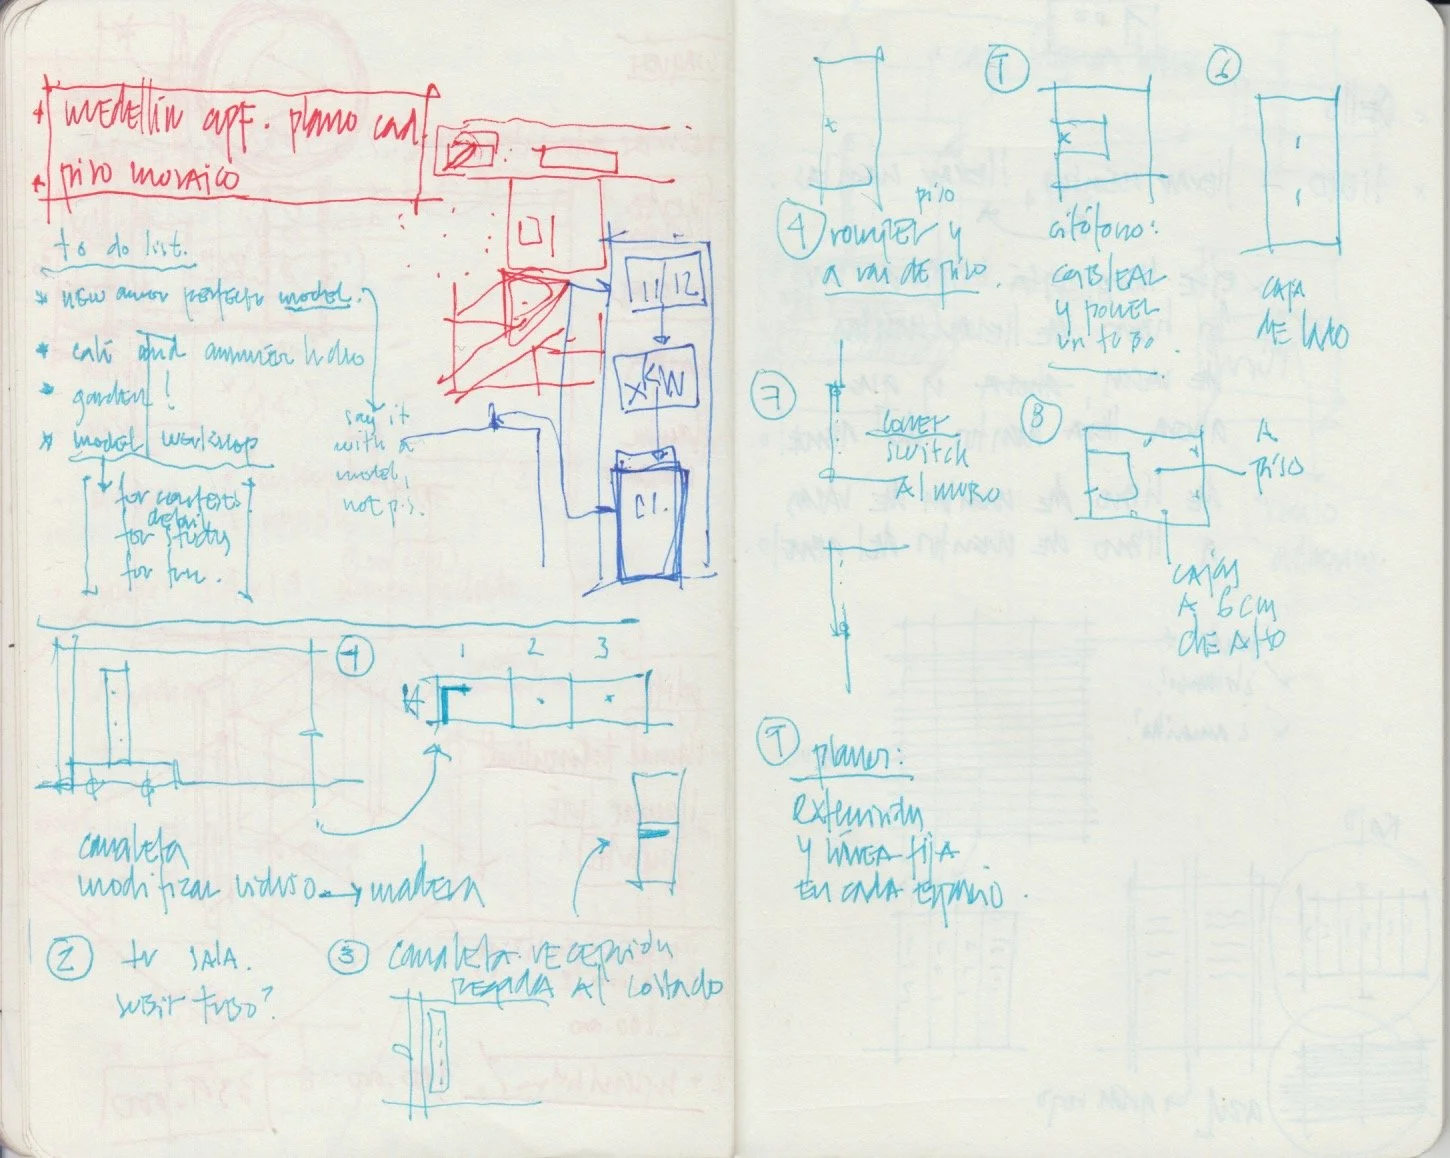 medellín apt. plano cad.
piso mosaico
to do list.
* new amor perfecto model.
* cali and
* garden!
* model workshop
for contests
detail
for study
for fun.
say it
with a
model,
not p.s.
01
11 12
KW
01.
1
1 2 3
canaleta
modificar vidrio → madera
2 tv sala.
subir tubo?
3 canaleta recepción
pegada al costado
piso
4 romper y
a ras de piso.
citófono:
cablear
y poner
un tubo.
6
caja
de lado
7
poner
switch
al muro
8
a
piso
cajas
a 6cm
de alto
9 planos:
extensión
y línea fija
en cada espacio.